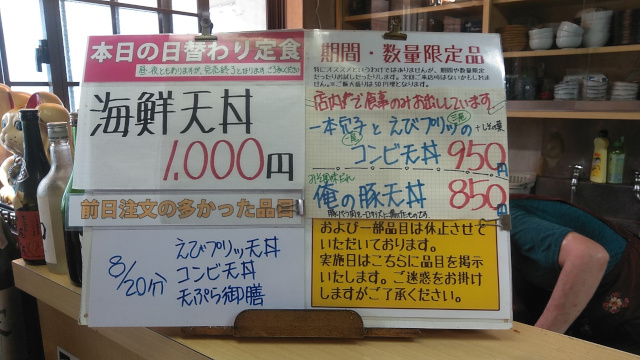 本日の日替わり定食
海鮮天丼
1,000円
前日注文の多かった品目
8/20分
えびプリッ天丼
コンビ天丼
天ぷら御膳
期間・数量限定品
店内で食事のみお出ししています
一本穴子とえびプリッの
一尾
三尾
+しその葉
コンビ天丼 950円
俺の豚天丼 850円
および一部品目は休止させて
いただいております。
実施日はこちらに品目を掲示
いたします。ご迷惑をお掛け
しますがご了承ください。